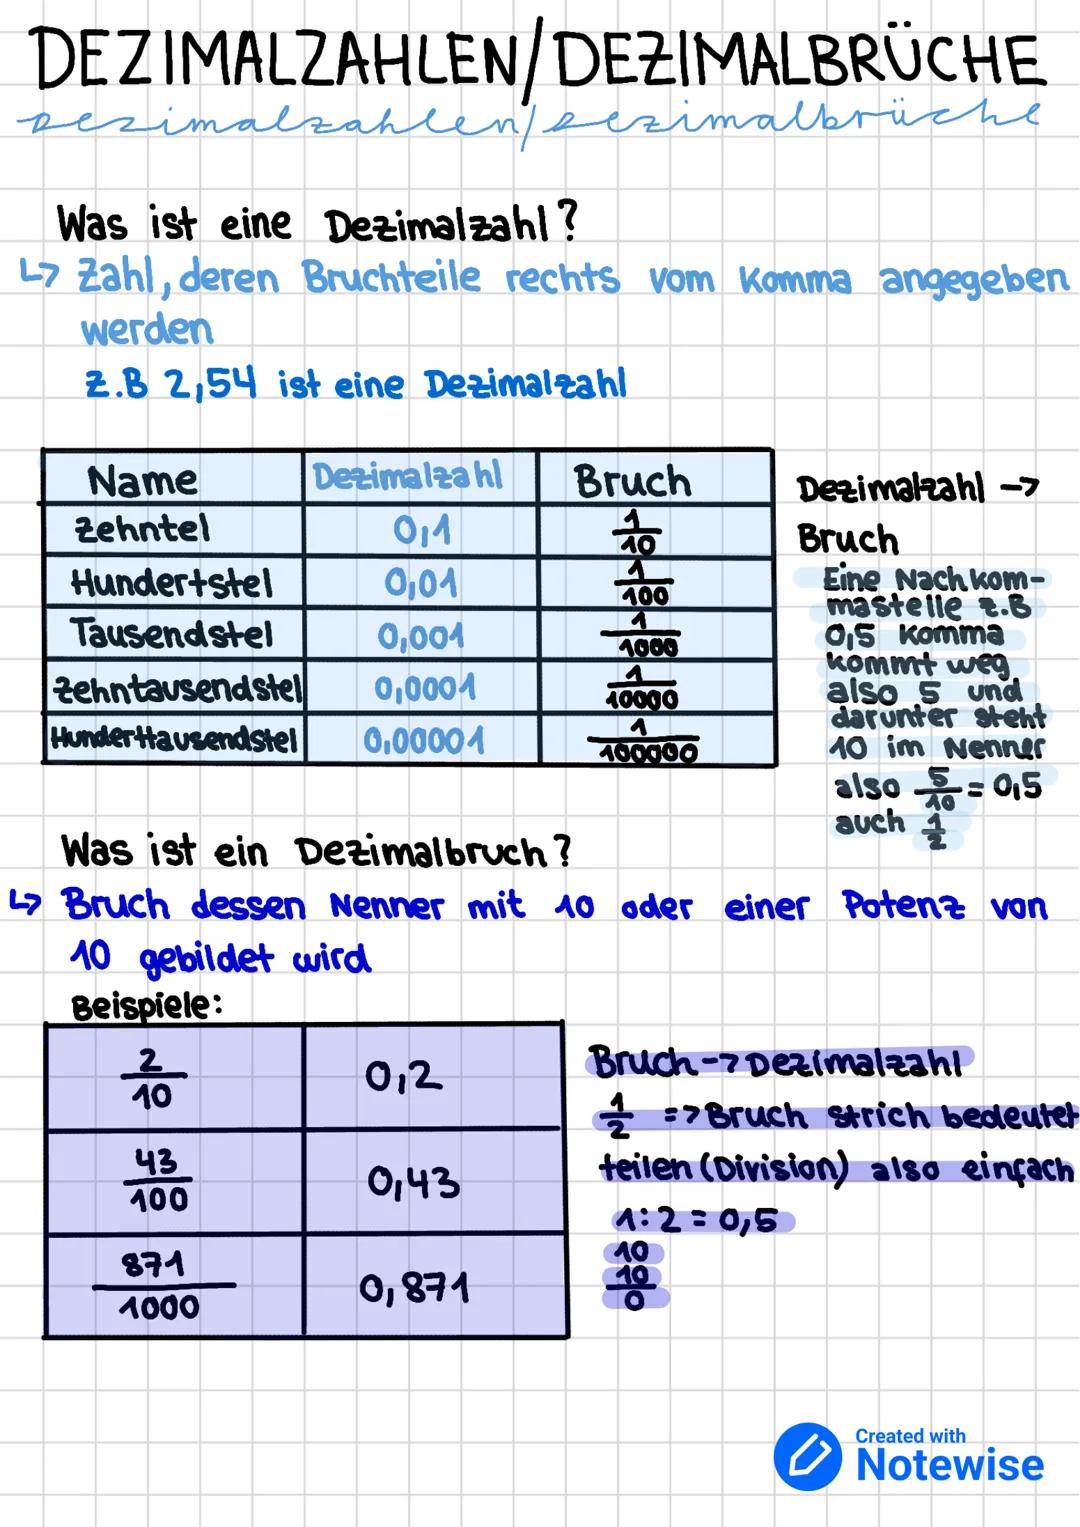 DEZIMALZAHLEN/DEZIMALBRÜCHE
Dezimalzahlen/Dezimalbrüche
Was ist eine Dezimalzahl?
↳ Zahl, deren Bruchteile rechts vom Komma angegeben
werden
z.B 2,54 ist eine Dezimalzahl
Name Dezimalzahl Bruch
Zehntel 0,1 1/10
Hundertstel 0,01 1/100
Tausendstel 0,001 1/1000
Zehntausendstel 0,0001 1/10000
Hunderttausendstel 0,00001 1/100000
Dezimalzahl ->
Bruch
Eine Nachkom-
mastelle z.B
0,5 Komma
kommt weg
also 5 und
darunter steht
10 im Nenner
also 5/10 = 0,5
auch 1/2
Was ist ein Dezimalbruch?
↳ Bruch dessen Nenner mit 10 oder einer Potenz von
10 gebildet wird
Beispiele:
2/10 0,2
43/100 0,43
871/1000 0,871
Bruch -> Dezimalzahl
1/2 => Bruch strich bedeutet
teilen (Division) also einfach
1:2 = 0,5
10
10
0
Created with
Notewise